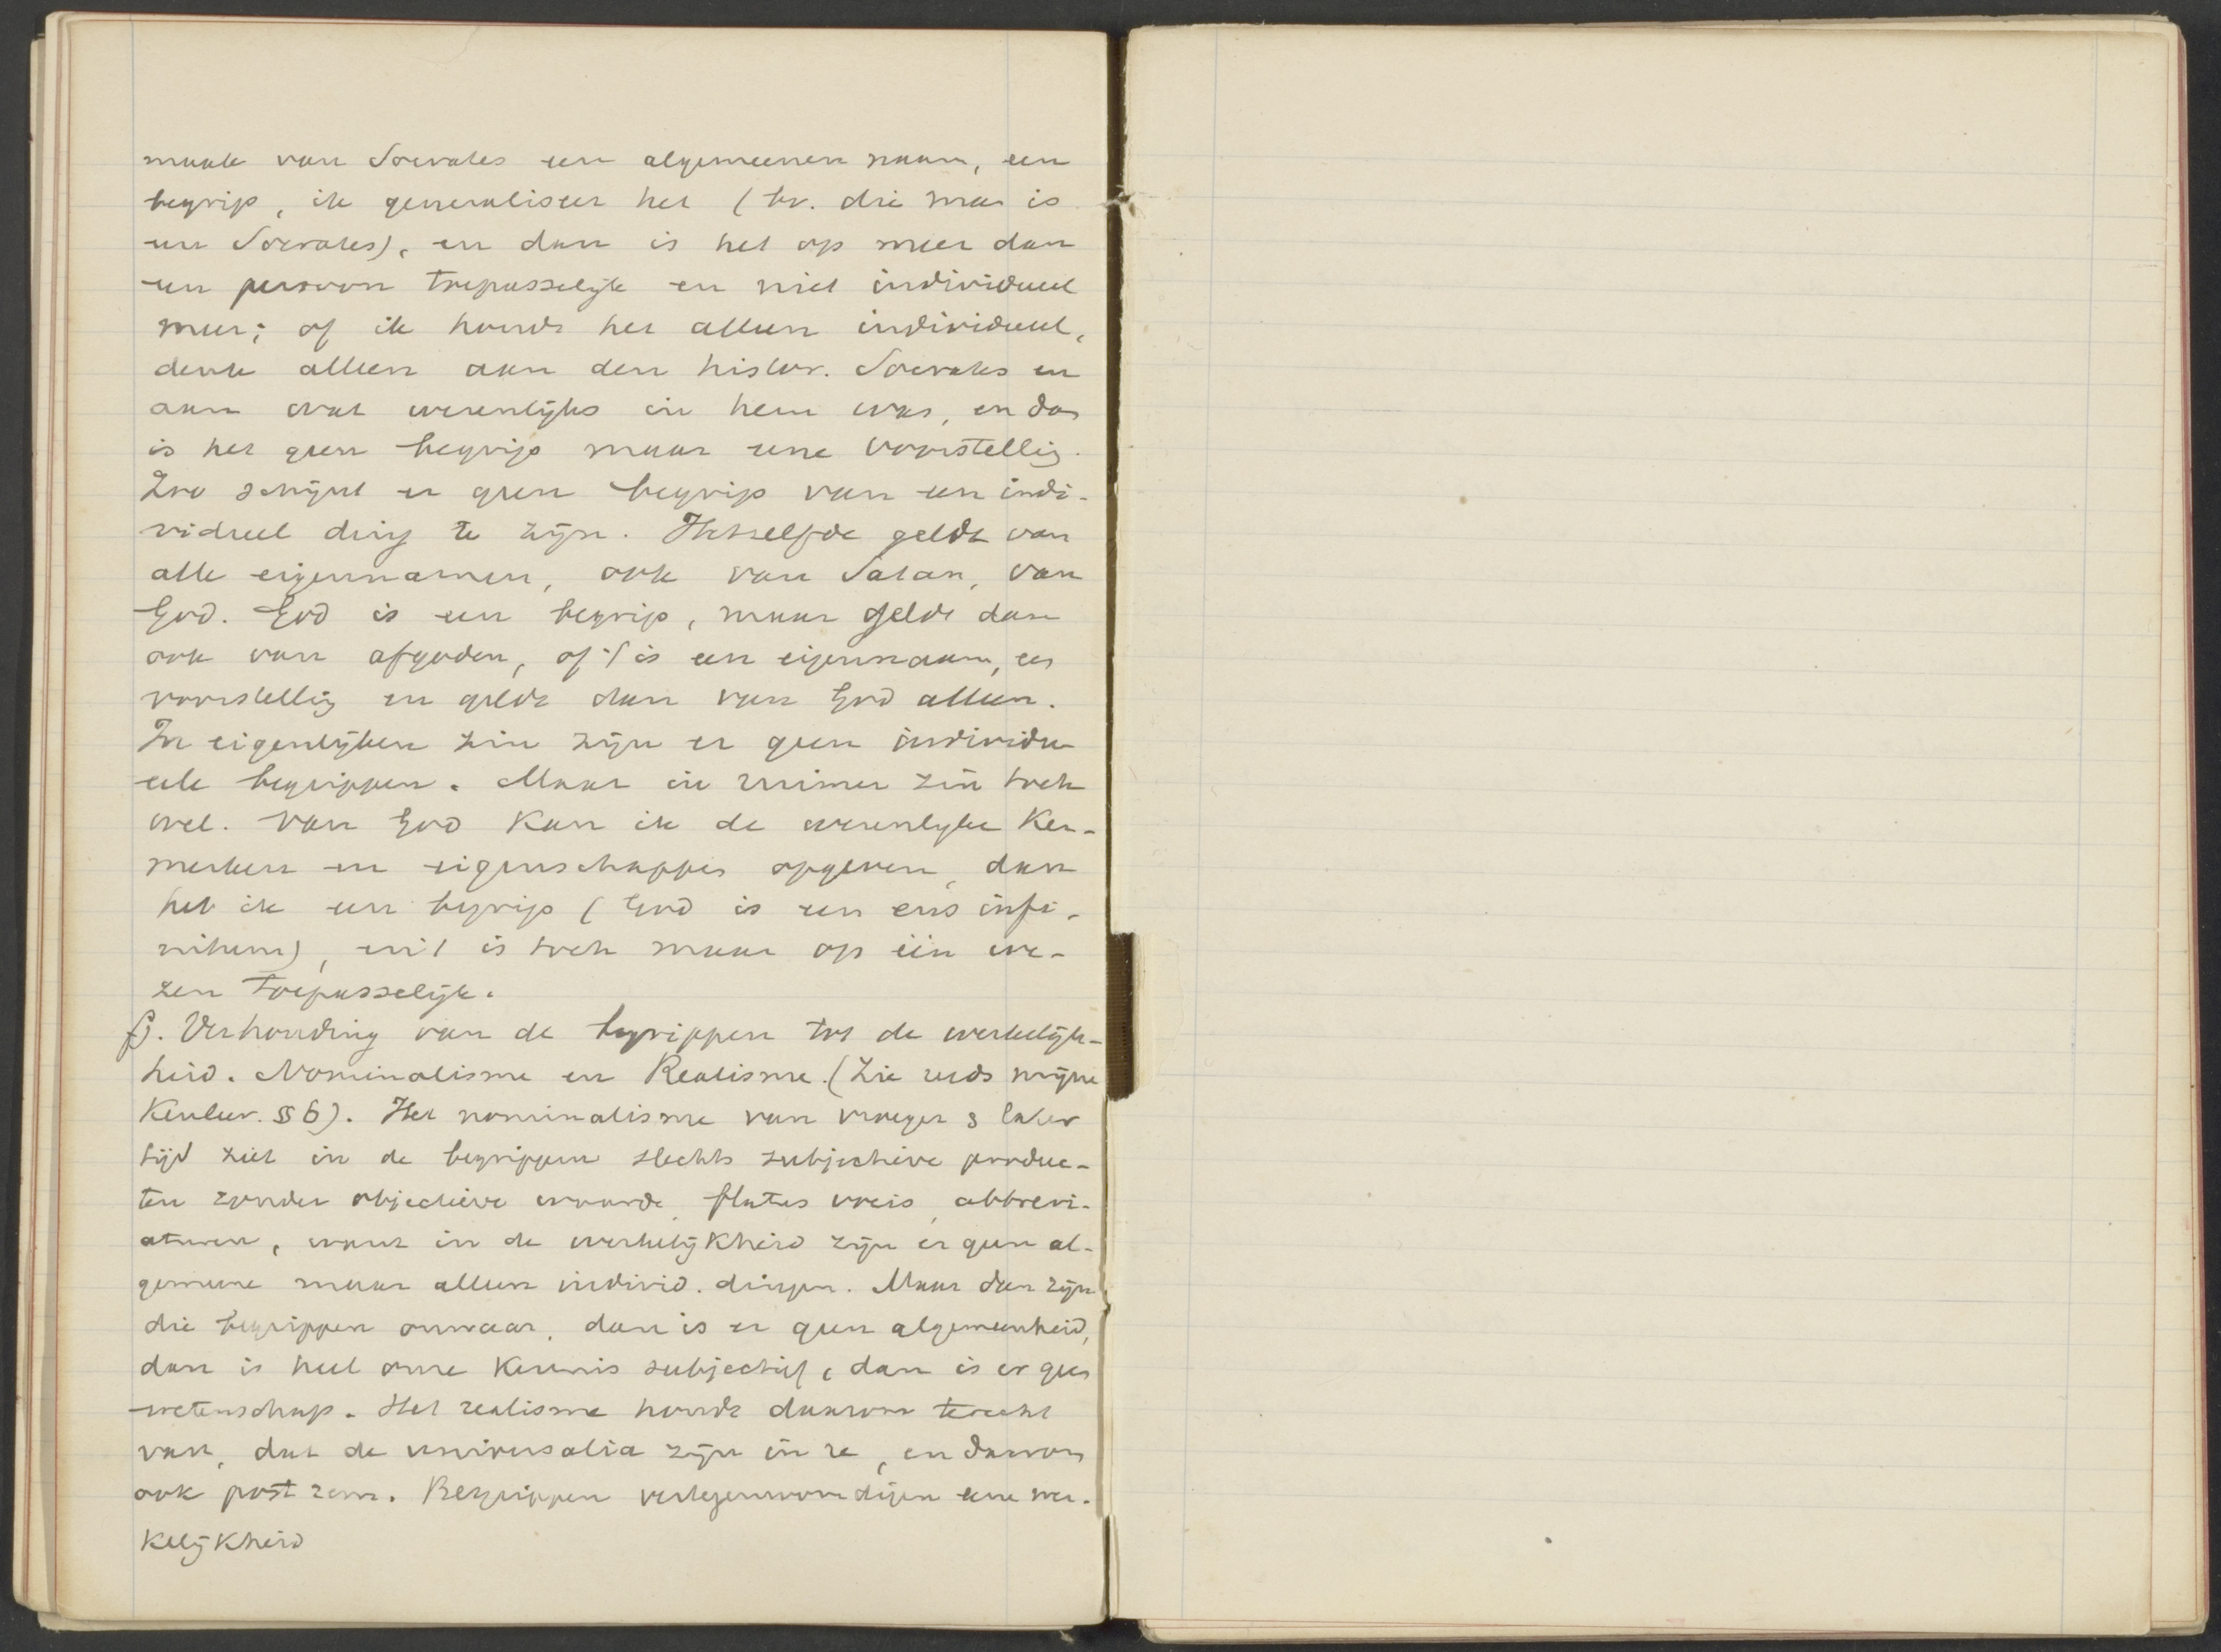 maak van Socrates een algemeenen naam, een
begrip, ik generaliseer het (bv. die man is
een Socrates), en dan is het op meer dan
een persoon toepasselijk en niet individueel
meer; of ik houde het alleen individueel,
denk alleen aan den histor. Socrates en
aan wat wezenlijks in hem was, en dan
is het geen begrip maar eene voorstellig.
Zoo schijnt er geen begrip van een indi-
vidueel ding te zijn. Hetzelfde geldt van
alle eigennamen, ook van Satan, van
God. God is een begrip, maar geldt dan
ook van afgoden, of 't is een eigennaam, een
voorstellig en geldt dan van God alleen.
In eigenlijken zin zijn er geen individu-
eele begrippen. Maar in ruimer zin toch
wel. Van God kan ik de wezenlyke ken-
merken en eigenschappen opgeven, dan
heb ik een begrip (God is een ens infi-
nitum), en 't is toch maar op één we-
zen toepasselijk.
f). Verhouding van de begrippen tot de werkelijk-
heid. Nominalisme en Realisme. (Zie reeds mijne
Kenleer. § 6). Het nominalisme van vroeger & later
tijd ziet in de begrippen slechts subjectieve produc-
ten zonder objectieve waarde, flatus vocis, abbrevi-
aturen, want in de werkelijkheid zijn er geen al-
gemeene maar alleen individ. dingen. Maar dan zijn
die begrippen onwaar, dan is er geen algemeenheid,
dan is heel onze kennis subjectief, dan is er geen
wetenschap. Het realisme houdt daarom terecht
vast, dat de universalia zijn in re, en daarom
ook post rem. Begrippen vertegenwoordigen eene wer-
kelijkheid